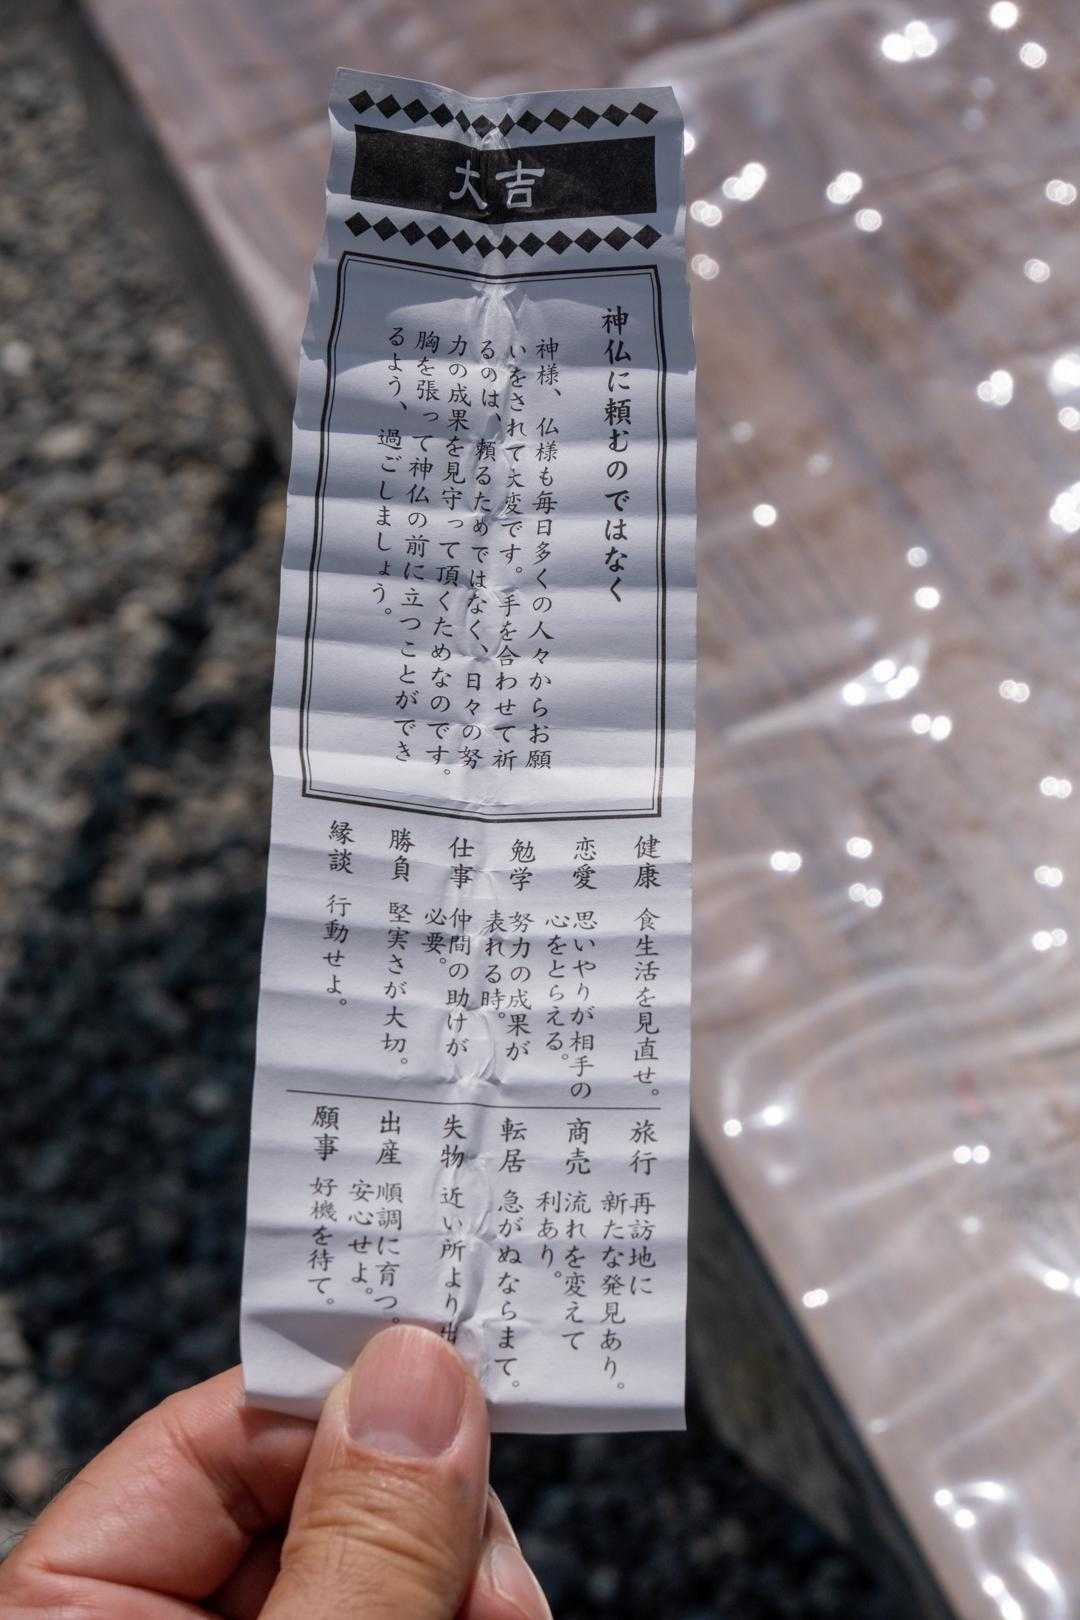 大吉
神仏に頼むのではなく
神様、仏様も毎日多くの人々からお願
いをされて大変です。手を合わせて祈
るのは、頼るためではなく、日々の努
力の成果を見守って頂くためなのです。
胸を張って神仏の前に立つことができ
るよう、過ごしましょう。
健康 食生活を見直せ。
恋愛 思いやりが相手の
心をとらえる。
勉学 努力の成果が
表れる時。
仕事 仲間の助けが
必要。
勝負 堅実さが大切。
縁談 行動せよ。
旅行 再訪地に
新たな発見あり。
商売 流れを変えて
利あり。
転居 急がぬならまて。
失物 近い所より出
出産 順調に育つ。
安心せよ。
願事 好機を待て。